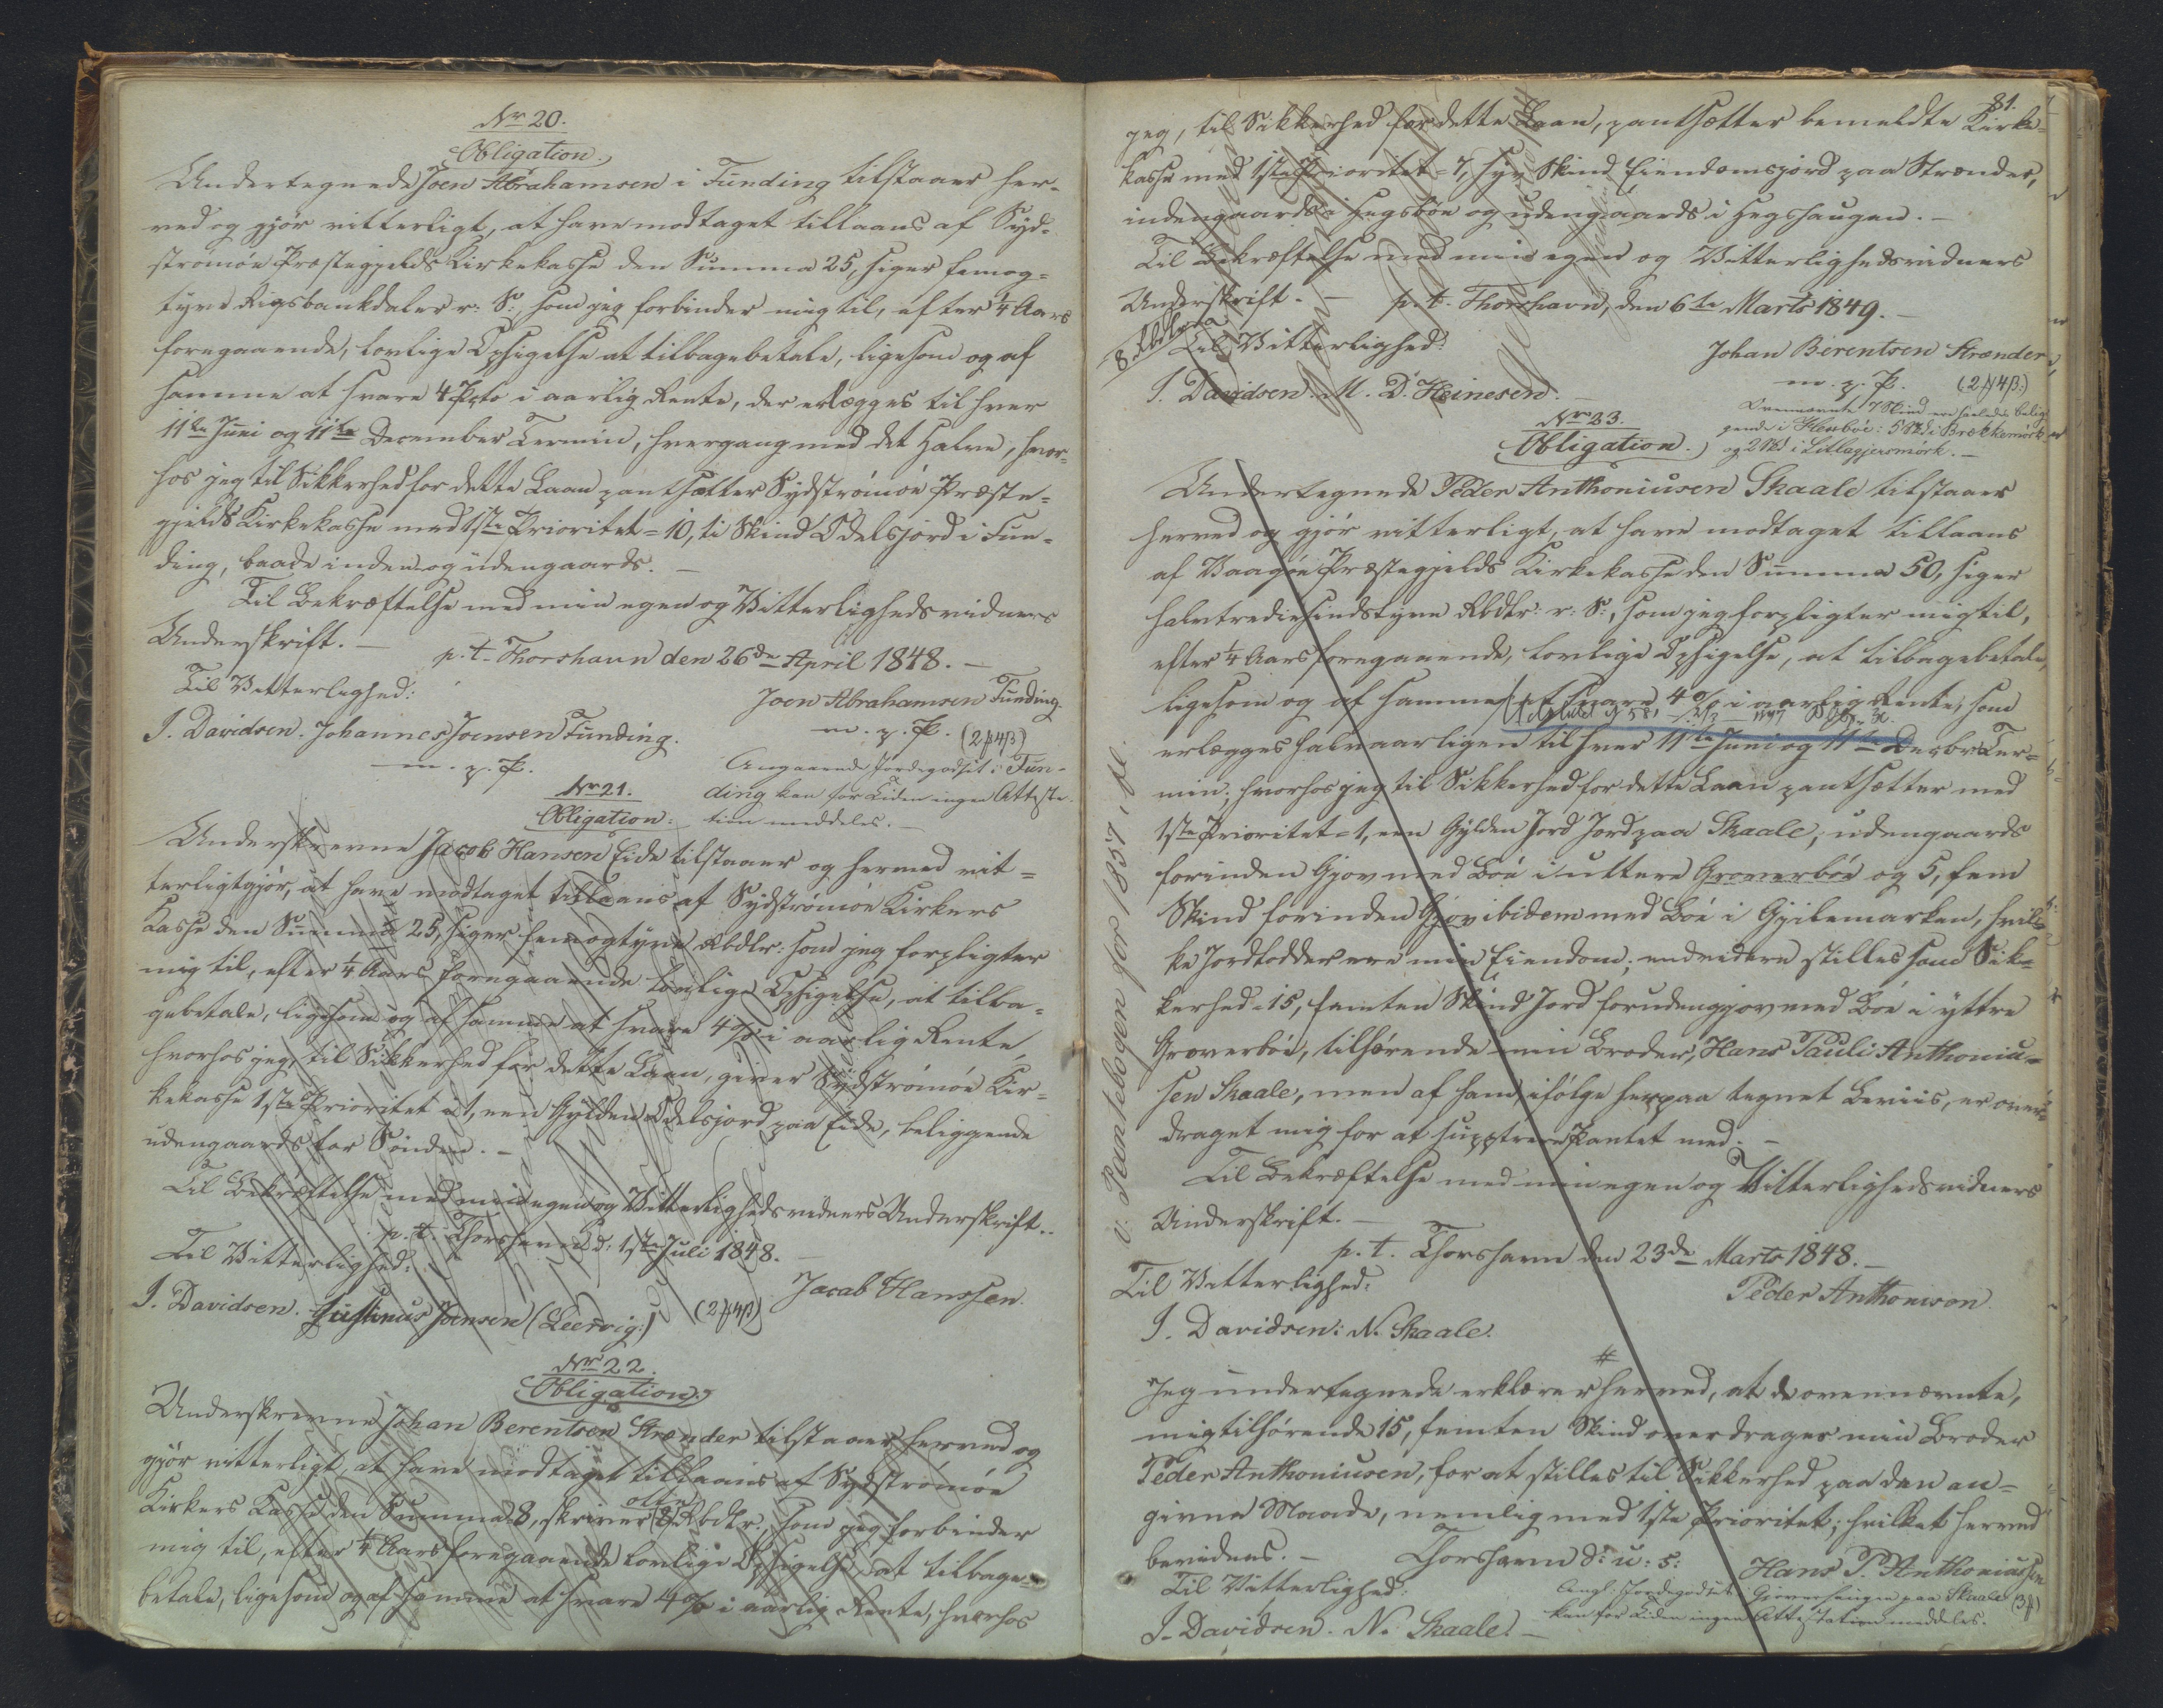 Nr 20.
Obligation.
Undertegnede Joen Abrahamsen i Funding tilstaaer her-
ved og gjör vitterligt, at have modtaget tillaans af Syd-
strömöe Præstegjelds Kirkekasse den Summa 25, siger femog-
tyve Rigsbankdaler r: S: som jeg forbinder mig til, efter 1/4 Aars
foregaaende, lovlige Opsigelse at tilbagebetale, ligesom og af
samme at svare 4 Prcto i aarlig Rente, der erlægges til hver
11te Juni og 11te December Termin, hvergang med det Halve, hvor-
hos jeg til Sikkerhed for dette Laan pantsætter Sydströmöe Præste-
gjelds Kirkekasse med 1ste Prioritet = 10, ti Skind Odelsjord i Fun-
ding, baade inden og udengaards. —
Til Bekræftelse med min egen og Vitterlighedsvidners
Underskrift. —
p. t. Thorshavn den 26de April 1848. —
Til Vitterlighed:
Joen Abrahamsen Funding.
J. Davidsen. Johannes Joensen Funding.
m. p. P. (2 f 4 β)
m. p. P.
Angaaende Jordegodset i Fun-
Nr 21.
ding kan for Tiden ingen Attesta-
Obligation:
tion meddeles. —
Underskrevne Jacob Hansen Eide tilstaaer og hermed vit-
terligtgjör, at have modtaget tillaans af Sydströmöe Kirkers
Kasse den Summa 25, siger femogtyve Rbdlr: som jeg forpligter
mig til, efter 1/4 Aars foregaaende lovlige Opsigelse, at tilba-
gebetale, ligesom og af samme at svare 4 % i aarlig Rente,
hvorhos jeg, til Sikkerhed for dette Laan, giver Sydströmöe Kir-
kekasse 1ste Prioritet i 1, een Gylden Odelsjord paa Eide, beliggende
udengaards for Sönden. —
Til Bekræftelse med min egen og Vitterlighedsvidners Underskrift. —
p. t. Thorshavn d: 1ste Juli 1848. —
Til Vitterlighed:
Jacob Hanssen.
J. Davidsen. Justinus Joensen (Leervig:)
(2 f 4 β)
Nr 22.
Obligation.
Underskrevne Johan Berentsen Strænder tilstaaer herved og
gjör vitterligt at have modtaget tillaans af Sydströmöe
Kirkers Kasse den Summa 8, skriver otte Rbdlr., som jeg forbinder
mig til, efter 1/4 Aars foregaaende lovlige Opsigelse, at tilbage-
betale, ligesom og af samme at svare 4 % i aarlig Rente, hvorhos
81.
jeg, til Sikkerhed for dette Laan, pantsætter bemeldte Kirke-
kasse med 1ste Prioritet = 7, syv Skind Eiendomsjord paa Strænder,
indengaards i Hegsböe og udengaards i Hegshaugen. —
Til Bekræftelse med min egen og Vitterlighedsvidners
Underskrift. —
p. t. Thorshavn, den 6te Marts 1849. —
Til Vitterlighed:
Johan Berentsen Strænder,
J. Davidsen. M. D. Heinesen.
m. p. P. (2 f 4 β:)
Nr 23.
Ovennævnte 7 Skind ere saaledes belig-
Obligation.
gende i Hersböe: 5 Skd i Brækkemörk
og 2 Skd i Lillegjersmörk. —
Undertegnede Peder Anthoniusen Skaale tilstaaer
herved og gjör vitterligt, at have modtaget tillaans
af Vaagöe Præstegjelds Kirkekasse den Summa 50, siger
halvtrediesindstyve Rbdlr: r: S:, som jeg forpligter mig til,
efter 1/4 Aars foregaaende, lovlige Opsigelse, at tilbagebetale,
ligesom og af samme at svare 4 % i aarlig Rente, som
erlægges halvaarligen til hver 11te Juni og 11te Decbr Ter-
min; hvorhos jeg til Sikkerhed for dette Laan pantsætter med
1ste Prioritet = 1, een Gylden Jord Jord paa Skaale, udengaards
forinden Gjov med Böe i uttere Groverböe og 5, fem
Skind forinden Gjov ibidem med Böe i Gyilemarken, hvil-
ke Jordlodder ere min Eiendom; endvidere stilles som Sik-
kerhed = 15, femten Skind Jord forudengjov med Böe i yttre
Groverböe, tilhörende min Broder, Hans Pauli Anthoniu-
sen Skaale, men af ham, ifölge herpaa tegnet Beviis, er over-
draget mig for at supplere Pantet med. —
Til Bekræftelse med min egen og Vitterlighedsvidners
Underskrift. —
p. t. Thorshavn den 23de Marts 1848. —
Til Vitterlighed:
Peder Anthonison
J. Davidsen: N. Skaale.
v. Pantebogen for 1857,
#
Jeg undertegnede erklærer herved, at de ovennævnte,
mig tilhörende 15, femten Skind overdrages min Broder
Peder Anthoniusen, for at stilles til Sikkerhed paa den an-
givne Maade, nemlig med 1ste Prioritet; hvilket herved
bevidnes. —
Thorshavn d: u: s:
Hans P. Anthoniussen
Til Vitterlighed:
Angl. Jordegodset i Groverhaugen paa Skaale (3 f)
kan for Tiden ingen Attestation meddeles.
J. Davidsen. N. Skaale. —